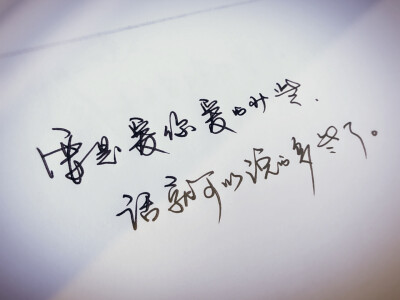 要是爱你爱的少些，
话就可以说的多些了。